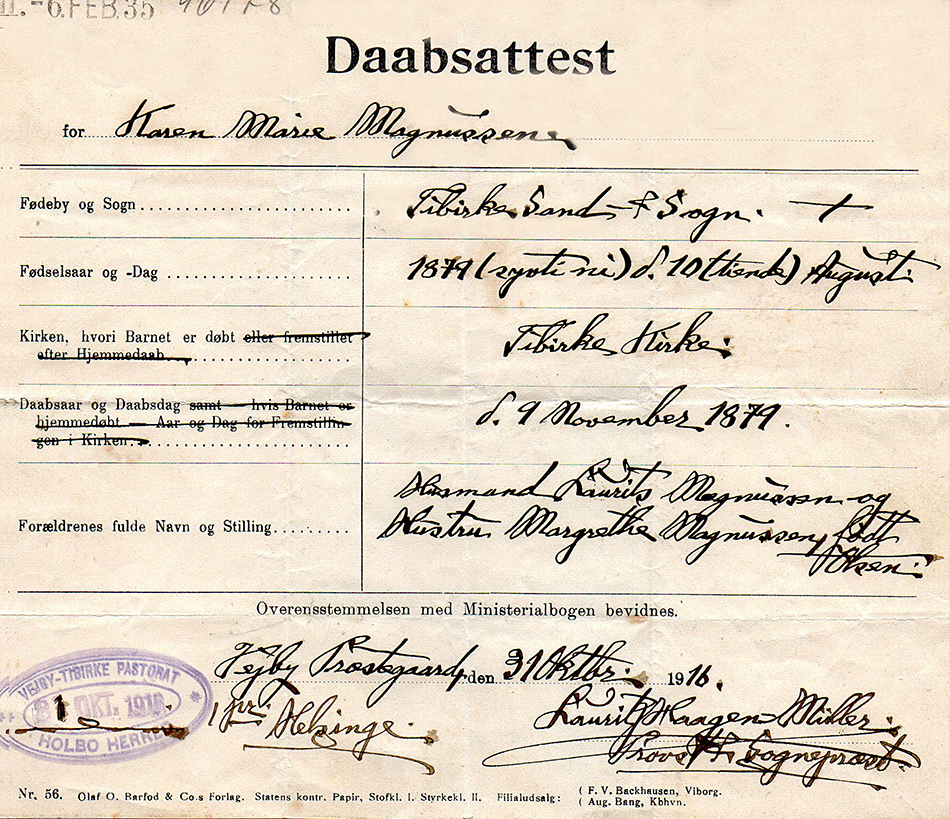 -6.FEB.35
Daabsattest
for Karen Marie Magnussen
Fødeby og Sogn Tibirke Sand - & Sogn.
Fødselsaar og -Dag 1879 (sytti ni) d. 10 (tiende) August.
Kirken, hvori Barnet er døbt eller fremstillet
efter Hjemmedaab Tibirke Kirke.
Daabsaar og Daabsdag samt — hvis Barnet er
hjemmedøbt — Aar og Dag for Fremstillin-
gen i Kirken. d. 9 November 1879.
Forældrenes fulde Navn og Stilling Husmand Laurits Magnussen og
Hustru Margrethe Magnussen, født
Olsen.
Overensstemmelsen med Ministerialbogen bevidnes.
Vejby Præstegaard, den 31 Oktbr. 1916.
pr. Helsinge.
Laurits Haagen Müller.
Provst & Sognepræst.
VEJBY-TIBIRKE PASTORAT
OKT. 1916
HOLBO HERRED
Nr. 56. Olaf O. Barfod & Co.s Forlag. Statens kontr. Papir, Stofkl. I. Styrkekl. II. Filialudsalg: ( F. V. Backhausen, Viborg.
( Aug. Bang, Kbhvn.